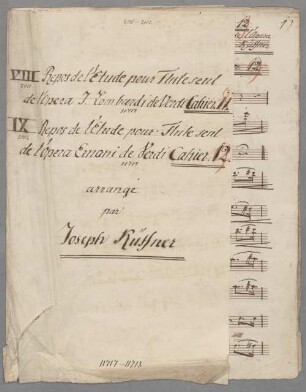 VIII Repos de l'Etude pour Flute seul
de l'Opera I. Lombardi de Verdi Cahier. 11.
IX Repos de l'étude pour Flute seul
de l'Opera Ernani de Verdi Cahier. 12.
arrangé
par
Joseph Küffner
11717-11718
12
Küffner